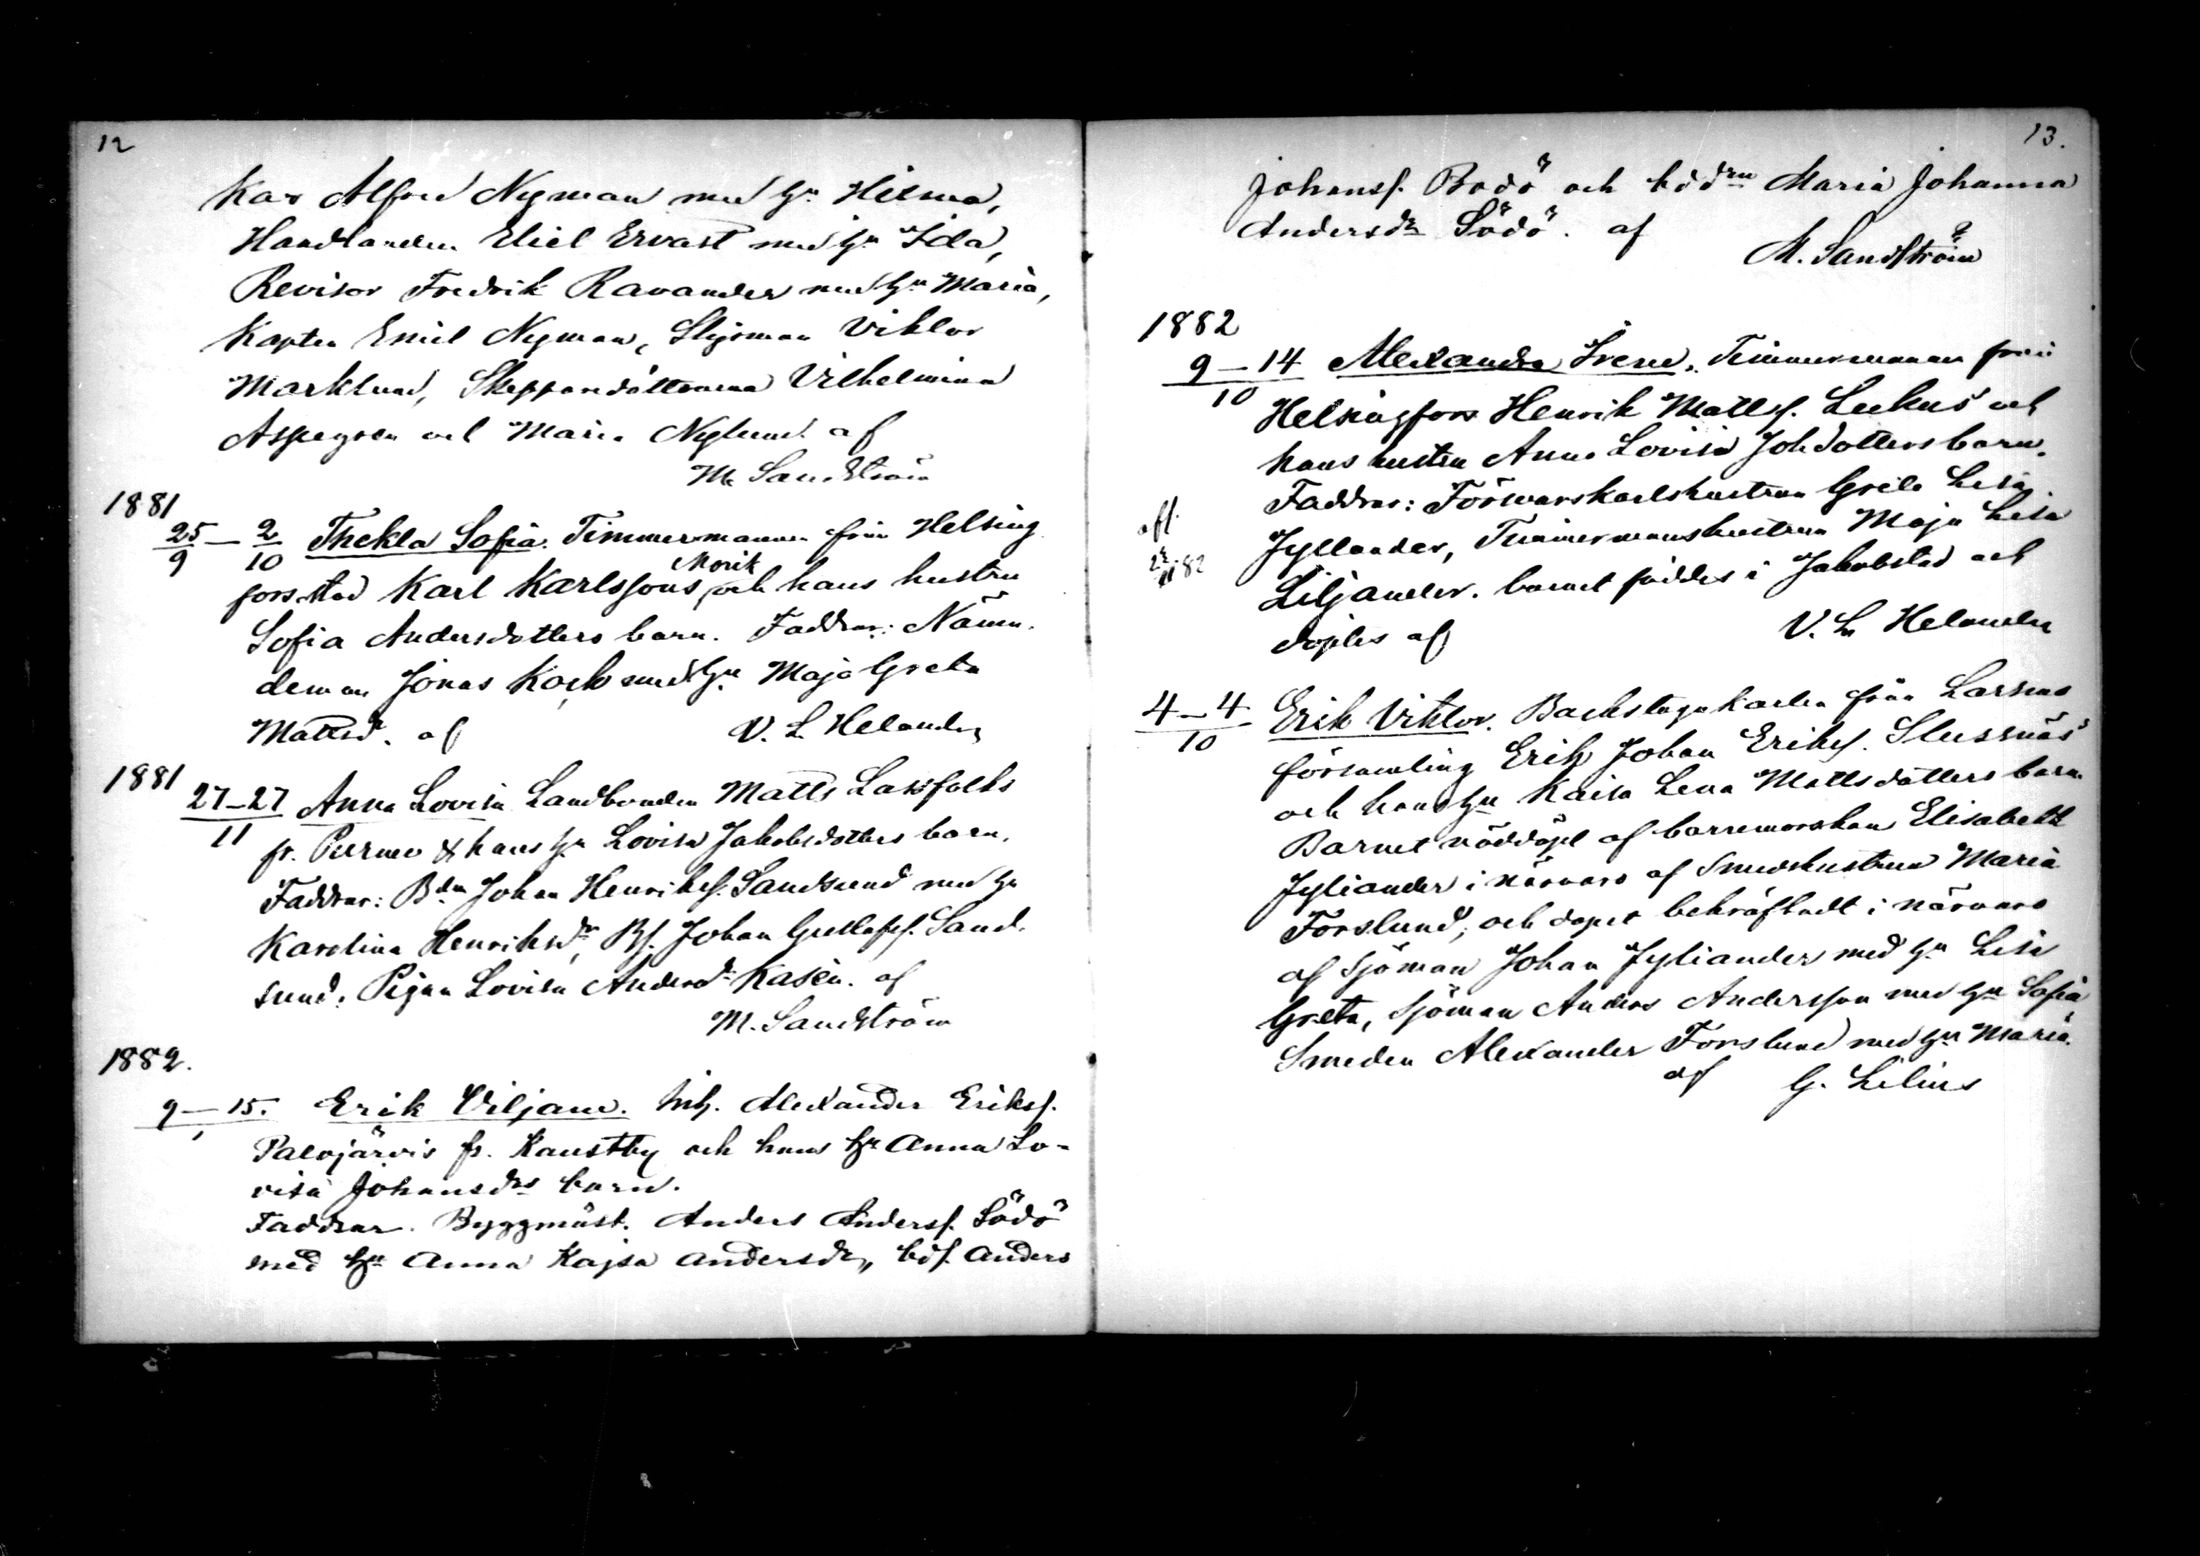 12
Kar Alfred Nyman med hu Hilma,
Handlanden Eliel Ervast med hu Ida,
Revisor Fredrik Ravander med hu Maria,
Kapten Emil Nyman, Styrman Viktor
Marklund, Skeppardöttrarna Vilhelmina
Aspegren och Maria Nylund af
M. Sandström
1881
25/9 — 2/10 Thekla Sofia. Timmermannen från Helsing
fors stad Karl Karlssons Morik och hans hustru
Sofia Andersdotters barn. Faddrar: Nämn.
deman Jonas Kock med hu Maja Greta
Mattsdr. af V. L. Helander
1881
27–27/11 Anna Lovisa Landbonden Matts Lassfolks
fr. Purmo & hans hu Lovisa Jakobsdotters barn.
Faddrar: Bdn Johan Henrikss. Sandsund med hu
Karolina Henriksdr, Bs. Johan Gustafss. Sand.
sund, Pigan Lovisa Andersdr Kasén. af
M. Sandström
1882.
9 — 15. Erik Viljam. Inh. Alexander Erikss.
Palojärvis fr. Kaustby och hans hu Anna Lo-
visa Johansdrs barn.
Faddrar. Byggmäst. Anders Anderss. Södö
med hu Anna Kajsa Andersdr, bds. Anders
13.
Johanss. Bodö och bddrn Maria Johanna
Andersdr Södö. af
M. Sandström
1882
9 — 14/10 Alexandra Irene. Timmermannen från
Helsingfors Henrik Mattss. Leckus och
hans hustru Anna Lovisa Joh.dotters barn.
Faddrar: Förswarskarlshustrun Greta Lisa
Jyllander, Timmermanshustrun Maja Lisa
Liljander. barnet föddes i Jakobstad och
döptes af V. L. Helander
afl.
82
4–4/10 Erik Viktor. Backstugukarlen från Larsmo
församling Erik Johan Erikss. Slussnäs
och hans hu Kaisa Lena Mattsdotters barn
Barnet nöddöpt af barnmorskan Elisabeth
Jyliander i närvaro af Smedshustrun Maria
Forslund, och dopet bekräftadt i närvaro
af Sjöman Johan Jyliander med hu Lisa
Greta, Sjöman Anders Andersson med hu Sofia,
Smeden Alexander Forslund med hu Maria.
af G. Lilius